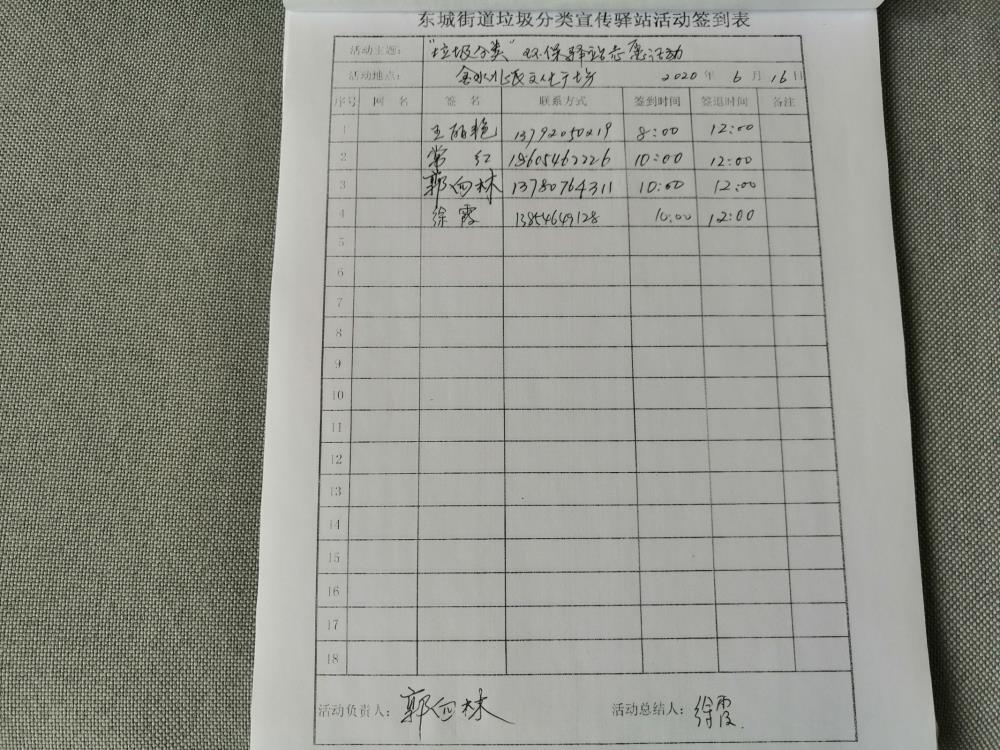 东城街道垃圾分类宣传驿站活动签到表
活动主题： "垃圾分类"环保驿站志愿活动
活动地点： 金水北辰文化广场 2020 年 6 月 16 日
序号 网名 签名 联系方式 签到时间 签退时间 备注
1 王丽艳 13792050219 8:00 12:00
2 常红 18605462226 10:00 12:00
3 郭向林 13780764311 10:00 12:00
4 徐霞 13854649128 10:00 12:00
5
6
7
8
9
10
11
12
13
14
15
16
17
18
活动负责人： 郭向林 活动总结人： 徐霞